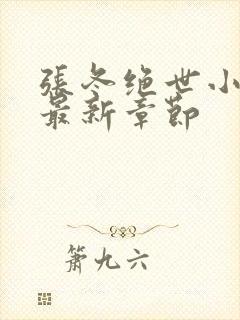 張冬绝世小
最新章節
箫九六